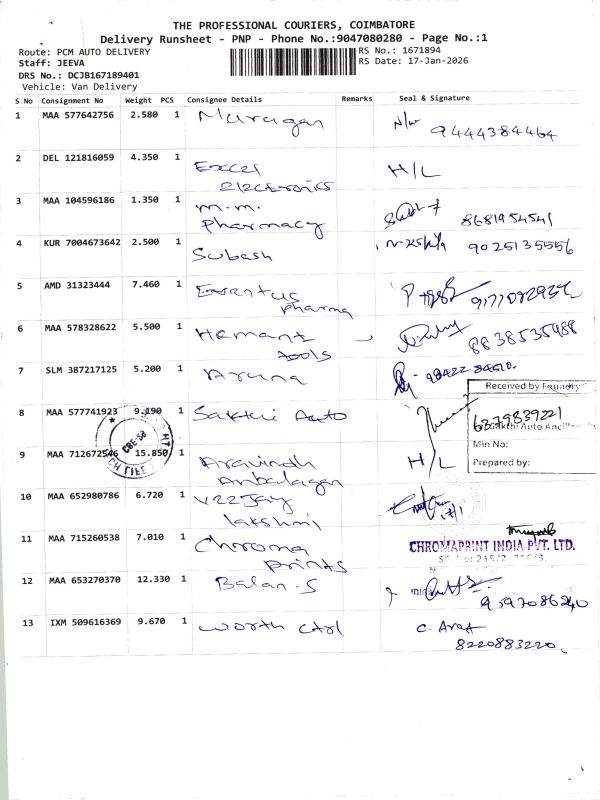 THE PROFESSIONAL COURIERS, COIMBATORE
Delivery Runsheet - PNP - Phone No.:9047080280 - Page No.:1
Route: PCM AUTO DELIVERY
RS No.: 1671894
Staff: JEEVA
RS Date: 17-Jan-2026
DRS No.: DCJB167189401
Vehicle: Van Delivery
S No Consignment No Weight PCS Consignee Details Remarks Seal & Signature
1 MAA 577642756 2.580 1 Murugan 9444384464
2 DEL 121816059 4.350 1 Excel H/L
3 MAA 104596186 1.350 1 m.m. pharmacy 8681954541
4 KUR 7004673642 2.500 1 Subash 9025135556
5 AMD 31323444 7.460 1 pharma
6 MAA 578328622 5.500 1 Hemant tools 8838535488
7 SLM 387217125 5.200 1 Aruna
Received by Foundry
8 MAA 577741923 9.190 1 Sakthi Auto 6379839221
Sakthi Auto Ancill
Min No:
Prepared by:
9 MAA 712672546 15.850 1 Aravindh Ambalagan H/L
10 MAA 652980786 6.720 1 lakshmi 17/1
11 MAA 715260538 7.010 1 Chroma prints
CHROMAPRINT INDIA PVT. LTD.
12 MAA 653270370 12.330 1 Balan.S 9597086240
13 IXM 509616369 9.670 1 worth ctrl C. 8220883220